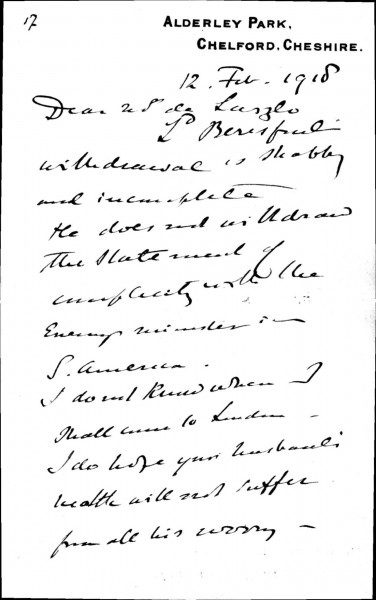 17
ALDERLEY PARK,
CHELFORD, CHESHIRE.
12. Feb. 1918
Dear Mrs de Laszlo
Ld Beresford's
withdrawal is shabby
and incomplete
He does not withdraw
the statement of
complicity with the
Enemy minister in
S. America.
I do not know when I
shall come to London –
I do hope your husband's
health will not suffer
from all his worry –